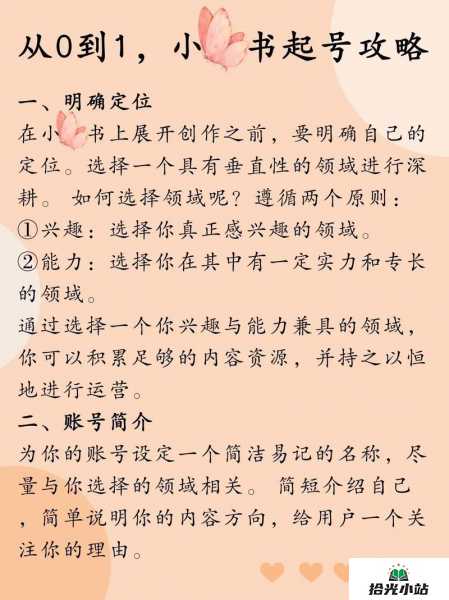 从0到1，小书起号攻略
一、明确定位
在小书上展开创作之前，要明确自己的
定位。选择一个具有垂直性的领域进行深
耕。 如何选择领域呢？遵循两个原则：
①兴趣：选择你真正感兴趣的领域。
②能力：选择你在其中有一定实力和专长
的领域。
通过选择一个你兴趣与能力兼具的领域，
你可以积累足够的内容资源，并持之以恒
地进行运营。
二、账号简介
为你的账号设定一个简洁易记的名称，尽
量与你选择的领域相关。 简短介绍自己
，简单说明你的内容方向，给用户一个关
注你的理由。
拾光小站